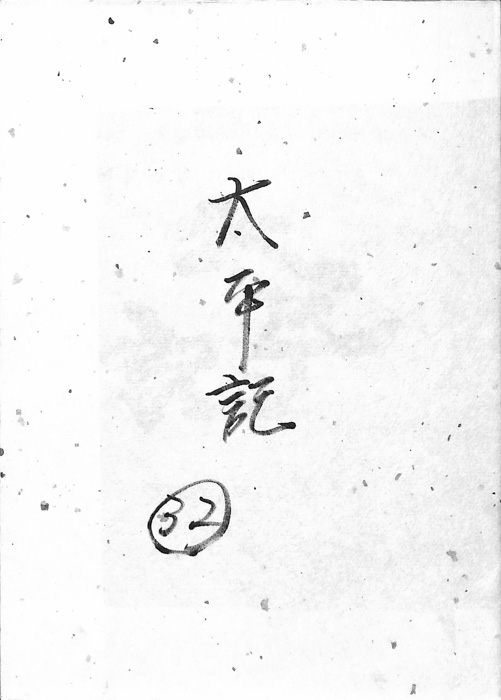 太平記
32